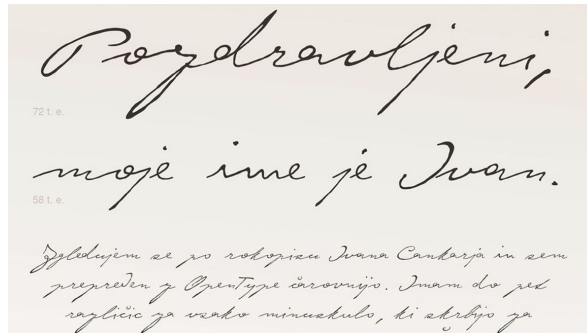 Pozdravljeni,
72 t. e.
moje ime je Ivan.
58 t. e.
Zgledujem se po rokopisu Ivana Cankarja in sem
prepreden z OpenType čarovnijo. Imam do pet
različic za vsako minuskulo, ki skrbijo za